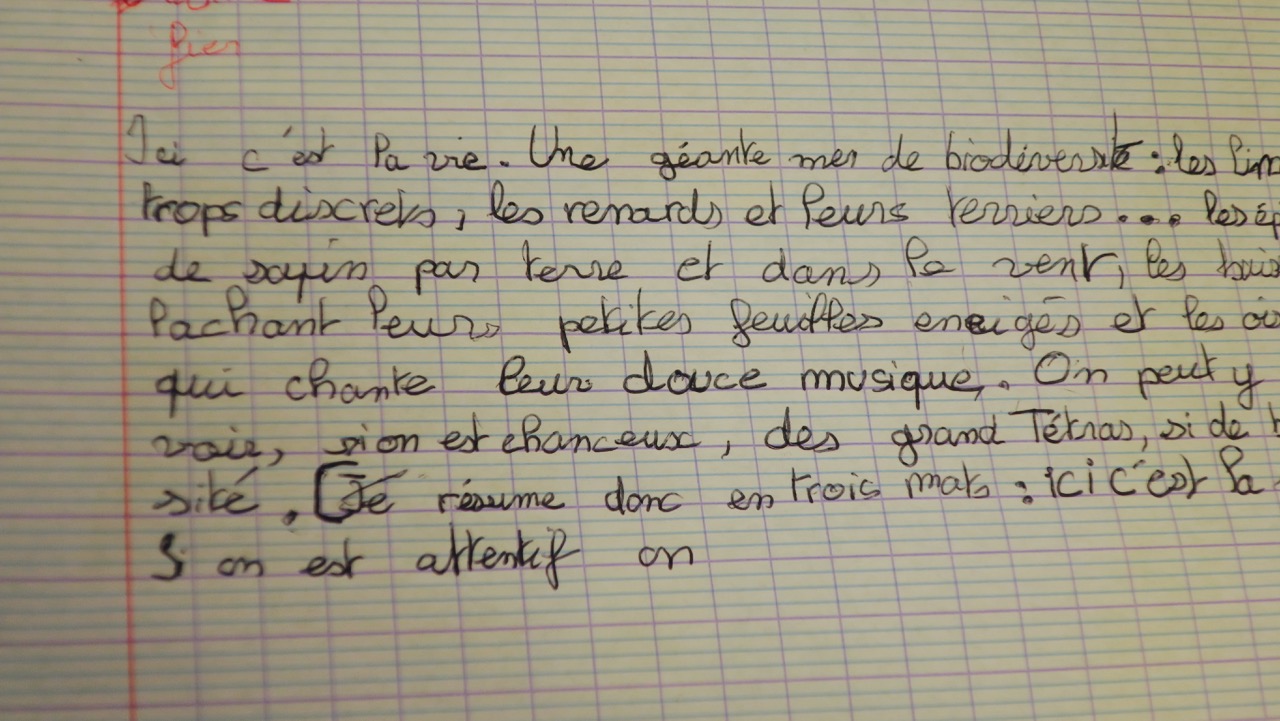 fier
Ici c'est la vie. Une géante mer de biodiversité : les
trops discrets, les renards et leurs terriers... les
de sapin par terre et dans le vent, les
lachant leurs petites feuilles eneigés et les
qui chante leur douce musique. On peut y
voir, si on est chanceux, des grand Tétras, si de
sité. [Je résume donc en trois mots : ici c'est la
Si on est attentif on